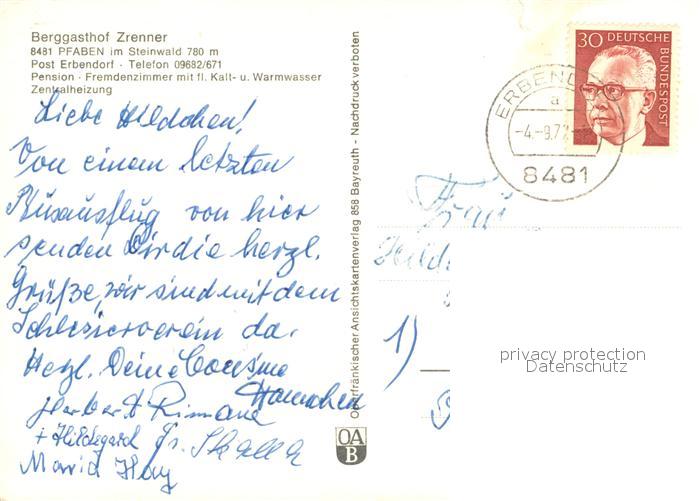 Berggasthof Zrenner
8481 PFABEN im Steinwald 780 m
Post Erbendorf · Telefon 09682/671
Pension · Fremdenzimmer mit fl. Kalt- u. Warmwasser
Zentralheizung
Liebe Hildchen!
Von einem letzten
Busausflug von hier
senden Dir die herzl.
Grüße, wir sind mit dem
Schlesierverein da.
Herzl. Deine Cousine
Hannchen
Herbert
+ Hildegard
Maria
Oberfränkischer Ansichtskartenverlag 858 Bayreuth - Nachdruck verboten
OA
B
30 DEUTSCHE
BUNDESPOST
ERBENDO
a
-4.-9.7
8481
Frau
Hild
1)
privacy protection
Datenschutz